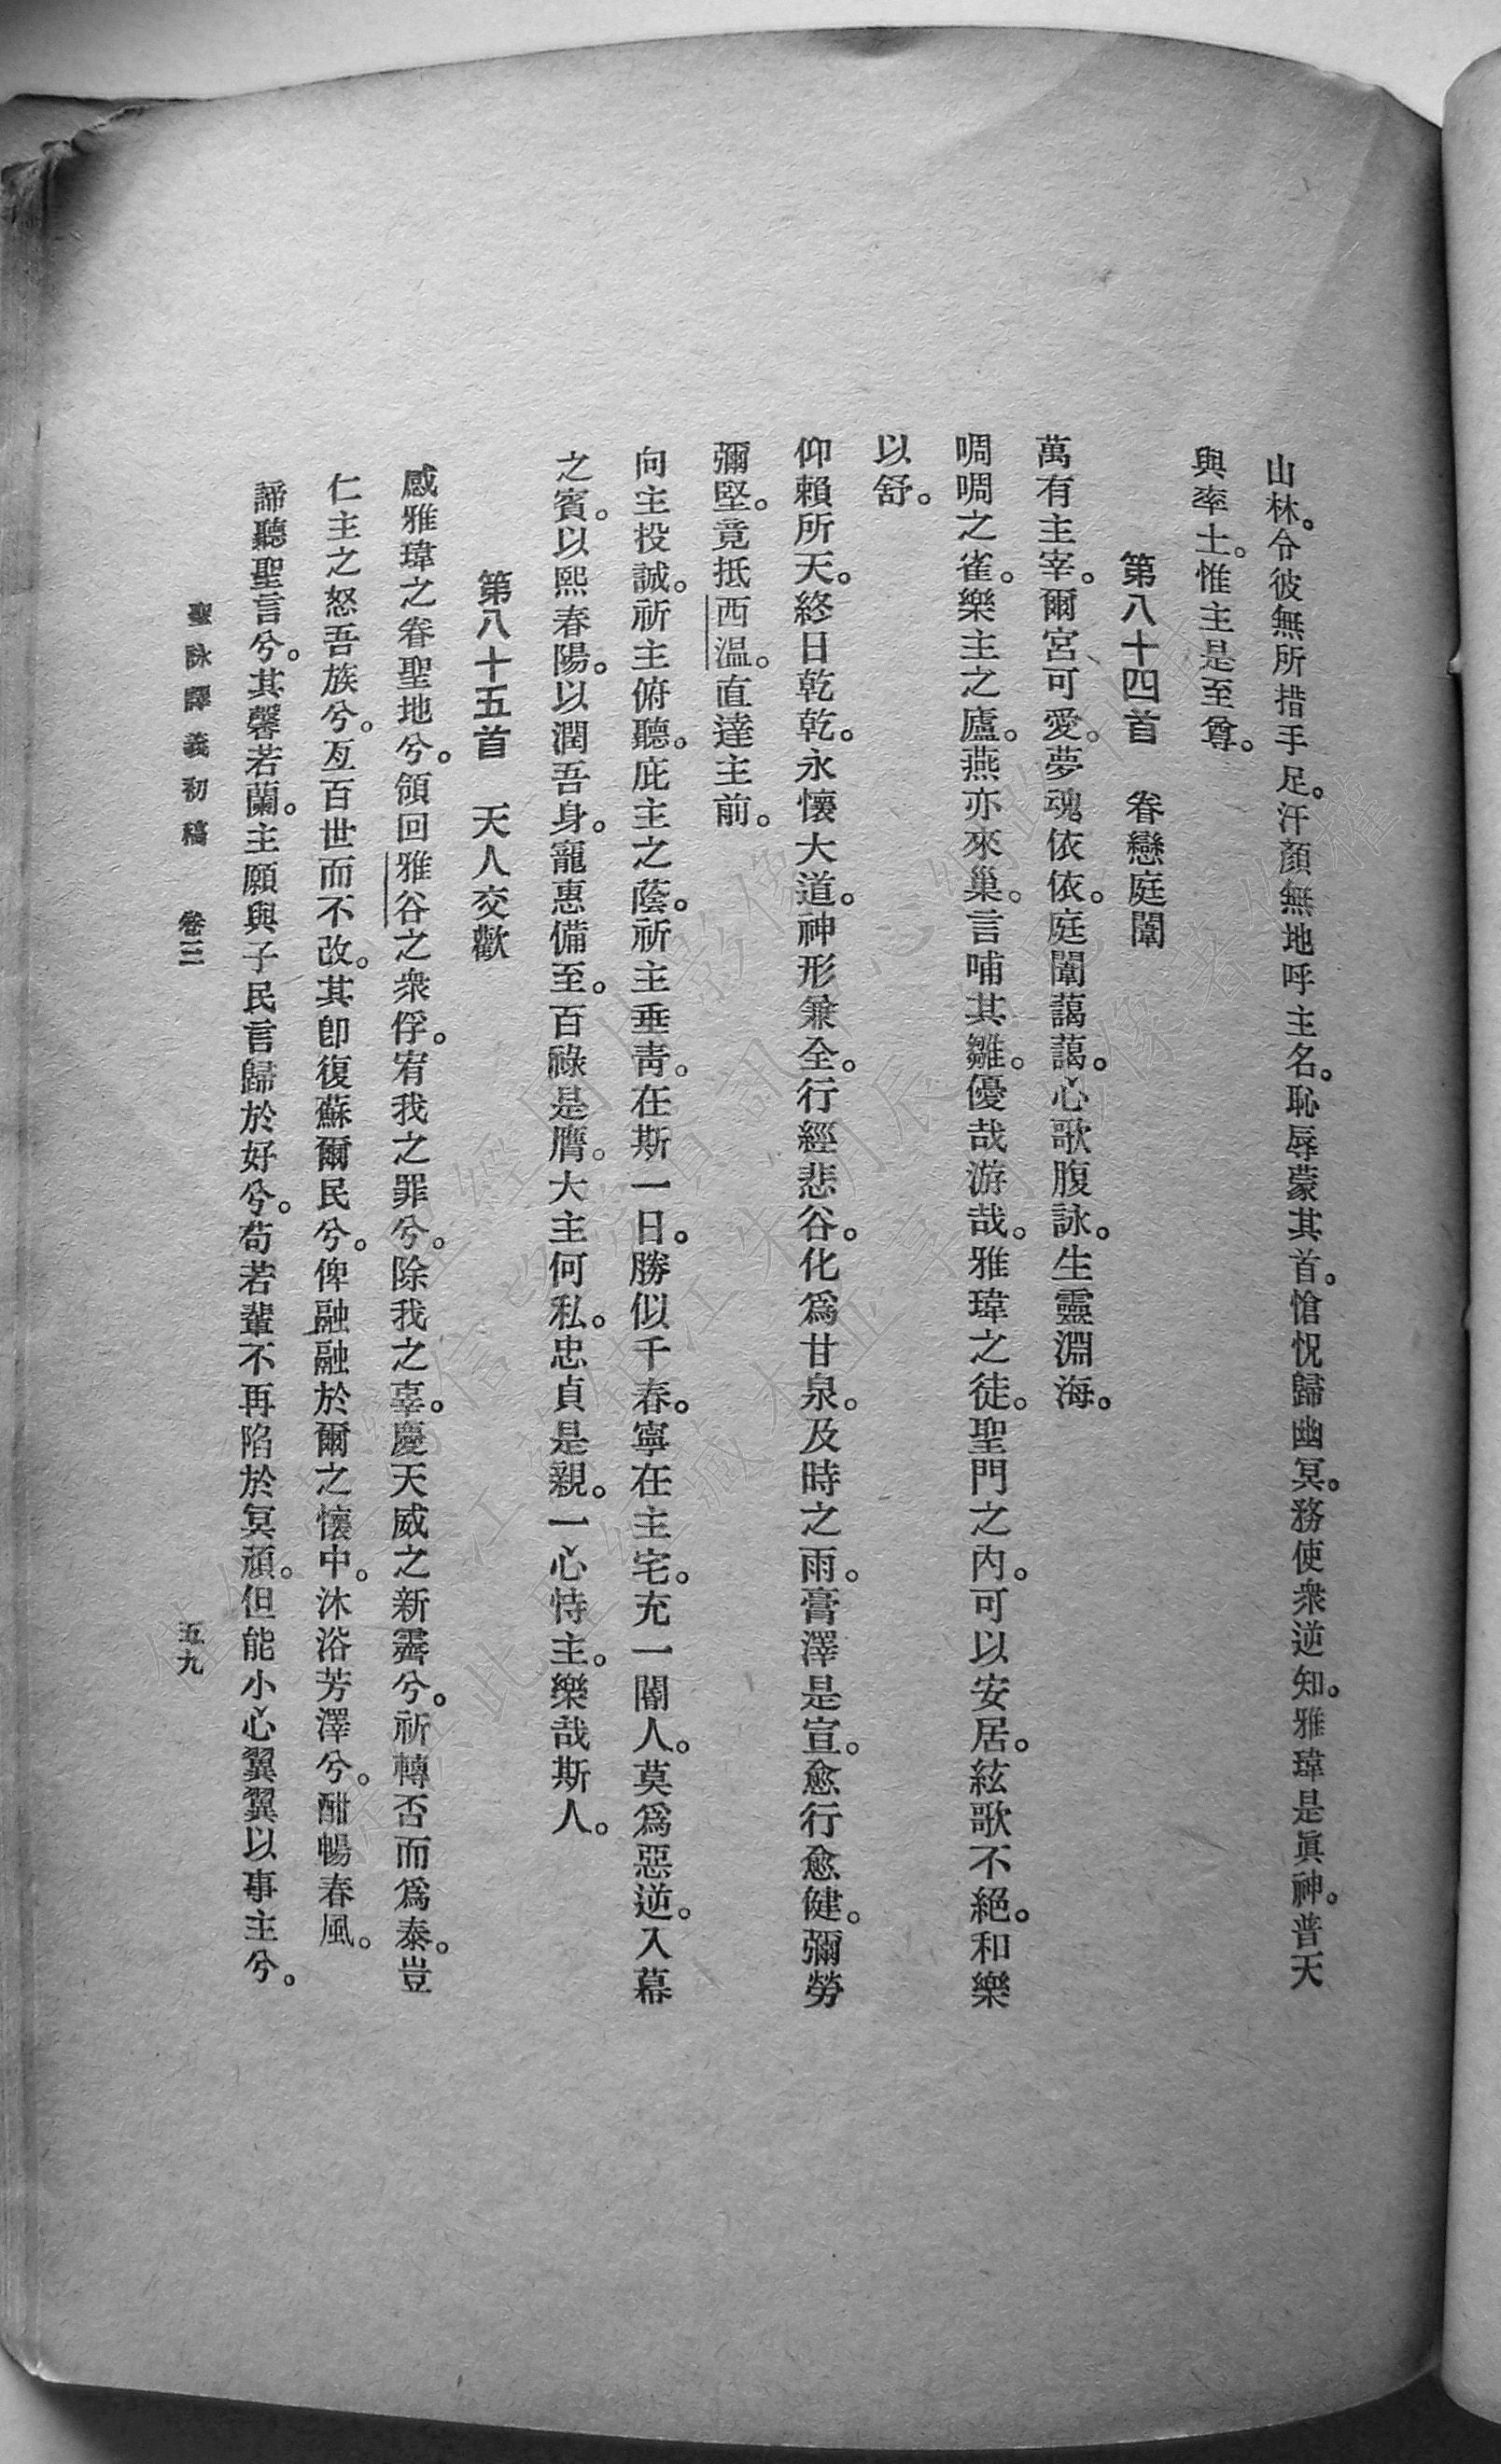 山林。令彼無所措手足。汗顏無地呼主名。恥辱蒙其首。愴怳歸幽冥。務使衆逆知。雅瑋是眞神。普天
與率土。惟主是至尊。
第八十四首 眷戀庭闈
萬有主宰。爾宮可愛。夢魂依依。庭闈藹藹。心歌腹詠。生靈淵海。
啁啁之雀。樂主之廬。燕亦來巢。言哺其雛。優哉游哉。雅瑋之徒。聖門之內。可以安居。絃歌不絕。和樂
以舒。
仰賴所天。終日乾乾。永懷大道。神形兼全。行經悲谷。化爲甘泉。及時之雨。膏澤是宣。愈行愈健。彌勞
彌堅。竟抵西溫。直達主前。
向主投誠。祈主俯聽。庇主之蔭。祈主垂靑。在斯一日。勝似千春。寧在主宅。充一閽人。莫爲惡逆。入幕
之賓。以熙春陽。以潤吾身。寵惠備至。百祿是膺。大主何私。忠貞是親。一心恃主。樂哉斯人。
第八十五首 天人交歡
感雅瑋之眷聖地兮。領回雅谷之衆俘。宥我之罪兮。除我之辜。慶天威之新霽兮。祈轉否而爲泰。豈
仁主之怒吾族兮。亙百世而不改。其卽復蘇爾民兮。俾融融於爾之懷中。沐浴芳澤兮。酣暢春風。
諦聽聖言兮。其馨若蘭。主願與子民言歸於好兮。苟若輩不再陷於冥頑。但能小心翼翼以事主兮。
聖詠譯義初稿 卷三 五九